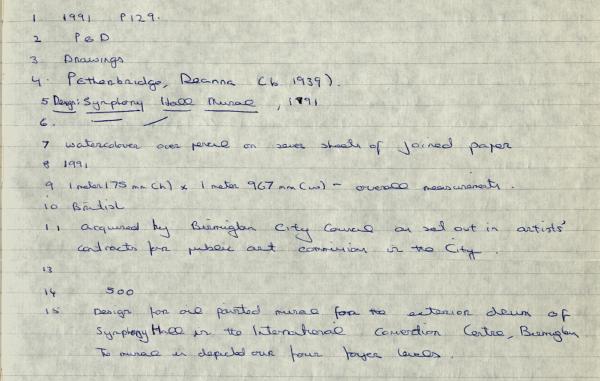 1 1991 P129.
2 P&D
3 Drawings
4. Petherbridge, Deanna (b. 1939).
5 Design: Symphony Hall Mural, 1991
6.
7 watercolour over pencil on seven sheets of joined paper
8 1991
9 1 meter 175 mm (h) x 1 meter 967 mm (w) - overall measurements.
10 British
11 acquired by Birmingham City Council as set out in artists'
contracts for public art commission in the City.
13
14 500
15 Design for oil painted mural for the exterior drum of
Symphony Hall in the International Convention Centre, Birmingham
The mural is depicted over four foyer levels.